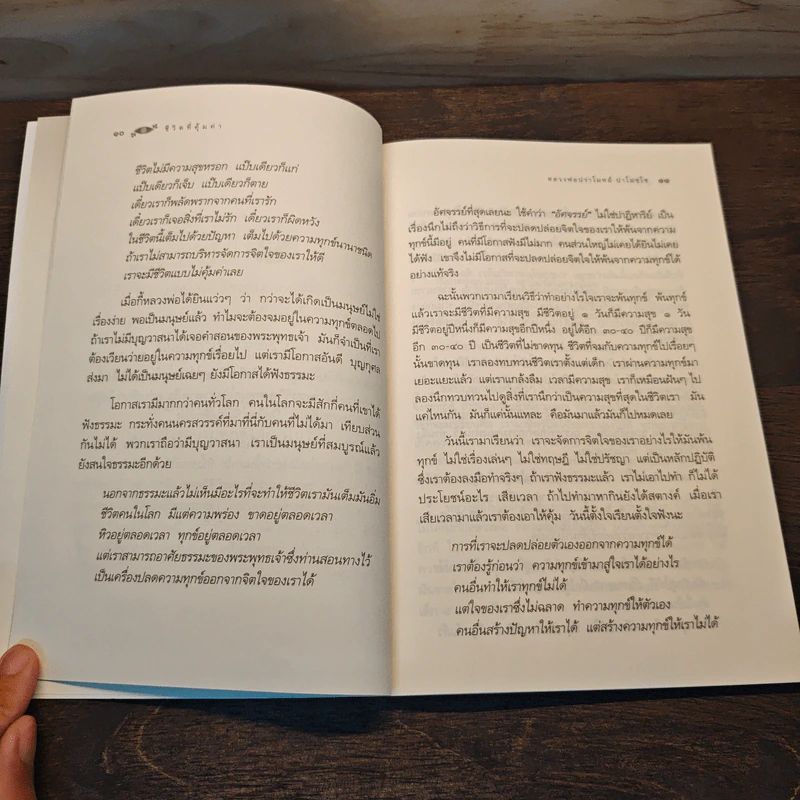 ๑๐ ชีวิตที่คุ้มค่า
ชีวิตไม่มีความสุขหรอก แป๊บเดียวก็แก่
แป๊บเดียวก็เจ็บ แป๊บเดียวก็ตาย
เดี๋ยวเราก็พลัดพรากจากคนที่เรารัก
เดี๋ยวเราก็เจอสิ่งที่เราไม่รัก เดี๋ยวเราก็ผิดหวัง
ในชีวิตนี้เต็มไปด้วยปัญหา เต็มไปด้วยความทุกข์นานาชนิด
ถ้าเราไม่สามารถบริหารจัดการจิตใจของเราให้ดี
เราจะมีชีวิตแบบไม่คุ้มค่าเลย
เมื่อกี้หลวงพ่อได้ยินแว่วๆ ว่า กว่าจะได้เกิดเป็นมนุษย์ไม่ใช่
เรื่องง่าย พอเป็นมนุษย์แล้ว ทำไมจะต้องจมอยู่ในความทุกข์ตลอดไป
ถ้าเราไม่มีบุญวาสนาได้เจอคำสอนของพระพุทธเจ้า มันก็จำเป็นที่เรา
ต้องเวียนว่ายอยู่ในความทุกข์เรื่อยไป แต่เรามีโอกาสอันดี บุญกุศล
ส่งมา ไม่ได้เป็นมนุษย์เฉยๆ ยังมีโอกาสได้ฟังธรรมะ
โอกาสเรามีมากกว่าคนทั่วโลก คนในโลกจะมีสักกี่คนที่เขาได้
ฟังธรรมะ กระทั่งคนนครสวรรค์ที่มาที่นี่กับคนที่ไม่ได้มา เทียบส่วน
กันไม่ได้ พวกเราถือว่ามีบุญวาสนา เราเป็นมนุษย์ที่สมบูรณ์แล้ว
ยังสนใจธรรมะอีกด้วย
นอกจากธรรมะแล้วไม่เห็นมีอะไรที่จะทำให้ชีวิตเรามันเต็มมันอิ่ม
ชีวิตคนในโลก มีแต่ความพร่อง ขาดอยู่ตลอดเวลา
หิวอยู่ตลอดเวลา ทุกข์อยู่ตลอดเวลา
แต่เราสามารถอาศัยธรรมะของพระพุทธเจ้าซึ่งท่านสอนทางไว้
เป็นเครื่องปลดความทุกข์ออกจากจิตใจของเราได้
หลวงพ่อปราโมทย์ ปาโมชฺโช ๑๑
อัศจรรย์ที่สุดเลยนะ ใช้คำว่า "อัศจรรย์" ไม่ใช่ปาฏิหาริย์ เป็น
เรื่องนึกไม่ถึงว่าวิธีการที่จะปลดปล่อยจิตใจของเราให้พ้นจากความ
ทุกข์นี้มีอยู่ คนที่มีโอกาสฟังมีไม่มาก คนส่วนใหญ่ไม่เคยได้ยินไม่เคย
ได้ฟัง เขาจึงไม่มีโอกาสที่จะปลดปล่อยจิตใจให้พ้นจากความทุกข์ได้
อย่างแท้จริง
ฉะนั้นพวกเรามาเรียนวิธีว่าทำอย่างไรใจเราจะพ้นทุกข์ พ้นทุกข์
แล้วเราจะมีชีวิตที่มีความสุข มีชีวิตอยู่ ๑ วันก็มีความสุข ๑ วัน
มีชีวิตอยู่ปีหนึ่งก็มีความสุขอีกปีหนึ่ง อยู่ได้อีก ๓๐-๔๐ ปีก็มีความสุข
อีก ๓๐-๔๐ ปี เป็นชีวิตที่ไม่ขาดทุน ชีวิตที่จมกับความทุกข์ไปเรื่อยๆ
นั้นขาดทุน เราลองทบทวนชีวิตเราตั้งแต่เด็ก เราผ่านความทุกข์มา
เยอะแยะแล้ว แต่เราแกล้งลืม เวลามีความสุข เราก็เหมือนฝันๆ ไป
ลองนึกทบทวนไปดูสิ่งที่เรานึกว่าเป็นความสุขที่สุดในชีวิตเรา มัน
แค่ไหนกัน มันก็แค่นั้นแหละ คือมันมาแล้วมันก็ไปหมดเลย
วันนี้เรามาเรียนว่า เราจะจัดการจิตใจของเราอย่างไรให้มันพ้น
ทุกข์ ไม่ใช่เรื่องเล่นๆ ไม่ใช่ทฤษฎี ไม่ใช่ปรัชญา แต่เป็นหลักปฏิบัติ
ซึ่งเราต้องลงมือทำจริงๆ ถ้าเราฟังธรรมะแล้ว เราไม่เอาไปทำ ก็ไม่ได้
ประโยชน์อะไร เสียเวลา ถ้าไปทำมาหากินยังได้สตางค์ เมื่อเรา
เสียเวลามาแล้วเราต้องเอาให้คุ้ม วันนี้ตั้งใจเรียนตั้งใจฟังนะ
การที่เราจะปลดปล่อยตัวเองออกจากความทุกข์ได้
เราต้องรู้ก่อนว่า ความทุกข์เข้ามาสู่ใจเราได้อย่างไร
คนอื่นทำให้เราทุกข์ไม่ได้
แต่ใจของเราซึ่งไม่ฉลาด ทำความทุกข์ให้ตัวเอง
คนอื่นสร้างปัญหาให้เราได้ แต่สร้างความทุกข์ให้เราไม่ได้